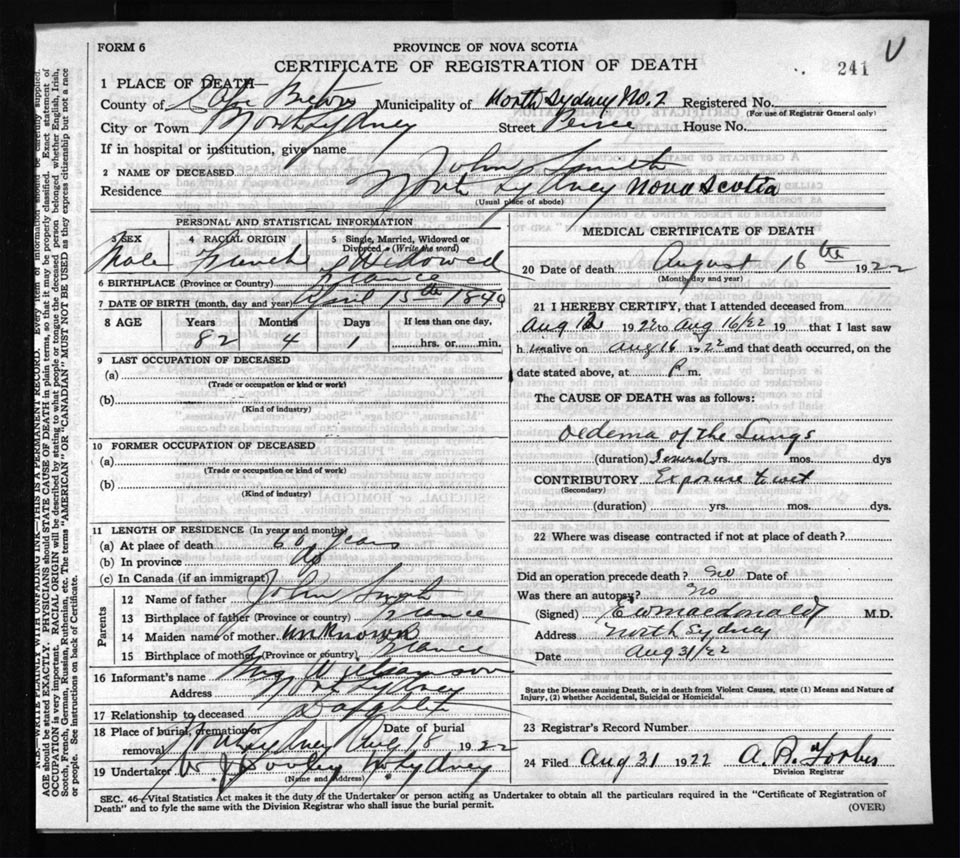 FORM 6
PROVINCE OF NOVA SCOTIA
CERTIFICATE OF REGISTRATION OF DEATH
241 V
1 PLACE OF DEATH—
County of Cape Breton Municipality of North Sydney No. 7 Registered No.
(For use of Registrar General only)
City or Town North Sydney Street Peirce House No.
If in hospital or institution, give name
2 NAME OF DECEASED John Smith
Residence North Sydney Nova Scotia
(Usual place of abode)
PERSONAL AND STATISTICAL INFORMATION
3 SEX 4 RACIAL ORIGIN 5 Single, Married, Widowed or Divorced (Write the word)
Male French Widowed
6 BIRTHPLACE (Province or Country) France
7 DATE OF BIRTH (month, day and year) April 15th 1840
8 AGE Years Months Days If less than one day,
82 4 1 hrs. or min.
9 LAST OCCUPATION OF DECEASED
(a)
(Trade or occupation or kind or work)
(b)
(Kind of industry)
10 FORMER OCCUPATION OF DECEASED
(a)
(Trade or occupation or kind or work)
(b)
(Kind of industry)
11 LENGTH OF RESIDENCE (In years and months)
(a) At place of death 60 years
(b) In province do
(c) In Canada (if an immigrant)
Parents
12 Name of father John Smith
13 Birthplace of father (Province or country) France
14 Maiden name of mother unknown
15 Birthplace of mother (Province or country) France
16 Informant's name Mrs
Address North Sydney
17 Relationship to deceased Daughter
18 Place of burial, cremation or removal Date of burial
North Sydney Aug 18 1922
19 Undertaker W. J. No Sydney
(Name and Address)
MEDICAL CERTIFICATE OF DEATH
20 Date of death August 16th 1922
(Month, day and year)
21 I HEREBY CERTIFY, that I attended deceased from
Aug 12 1922 to Aug 16/22 19 that I last saw
h im alive on Aug 16 1922 and that death occurred, on the
date stated above, at P m.
The CAUSE OF DEATH was as follows:
Oedema of the Lungs
(duration) Several yrs. mos. dys
CONTRIBUTORY Exposure to wet
(Secondary)
(duration) yrs. mos. dys
22 Where was disease contracted if not at place of death?
Did an operation precede death? No Date of
Was there an autopsy? No
(Signed) E W Macdonald M.D.
Address North Sydney
Date Aug 31/22
State the Disease causing Death, or in death from Violent Causes, state (1) Means and Nature of
Injury, (2) whether Accidental, Suicidal or Homicidal.
23 Registrar's Record Number
24 Filed Aug 31 1922 A. R. Forbes
Division Registrar
SEC. 46—Vital Statistics Act makes it the duty of the Undertaker or person acting as Undertaker to obtain all the particulars required in the "Certificate of Registration of
Death" and to fyle the same with the Division Registrar who shall issue the burial permit.
(OVER)
N.B.—WRITE PLAINLY WITH UNFADING INK—THIS IS A PERMANENT RECORD. Every item of information should be carefully supplied.
AGE should be stated EXACTLY. PHYSICIANS should STATE CAUSE OF DEATH in plain terms, so that it may be properly classified. Exact statement of
OCCUPATION is very important. RACIAL ORIGIN will be described by stating to what people or tongue the deceased person belonged whether English, Irish,
Scotch, French, German, Russian, Ruthenian, etc. The terms "AMERICAN" OR "CANADIAN" MUST NOT BE USED as they express citizenship but not a race
or people. See instructions on back of Certificate.